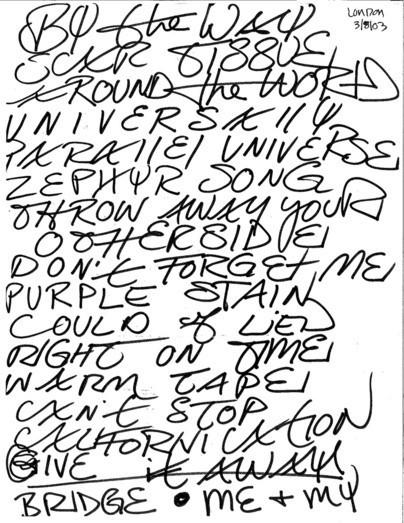 LONDON
3/8/03
BY the WAY
SCAR TISSUE
AROUND the WORLD
UNIVERSALLY
PARALLEL UNIVERSE
ZEPHYR SONG
THROW AWAY YOUR
OTHERSIDE
DON'T FORGET ME
PURPLE STAIN
COULD of LIED
RIGHT ON TIME
WARM TAPE
CAN'T STOP
CALIFORNICATION
GIVE it AWAY
BRIDGE • ME + MY